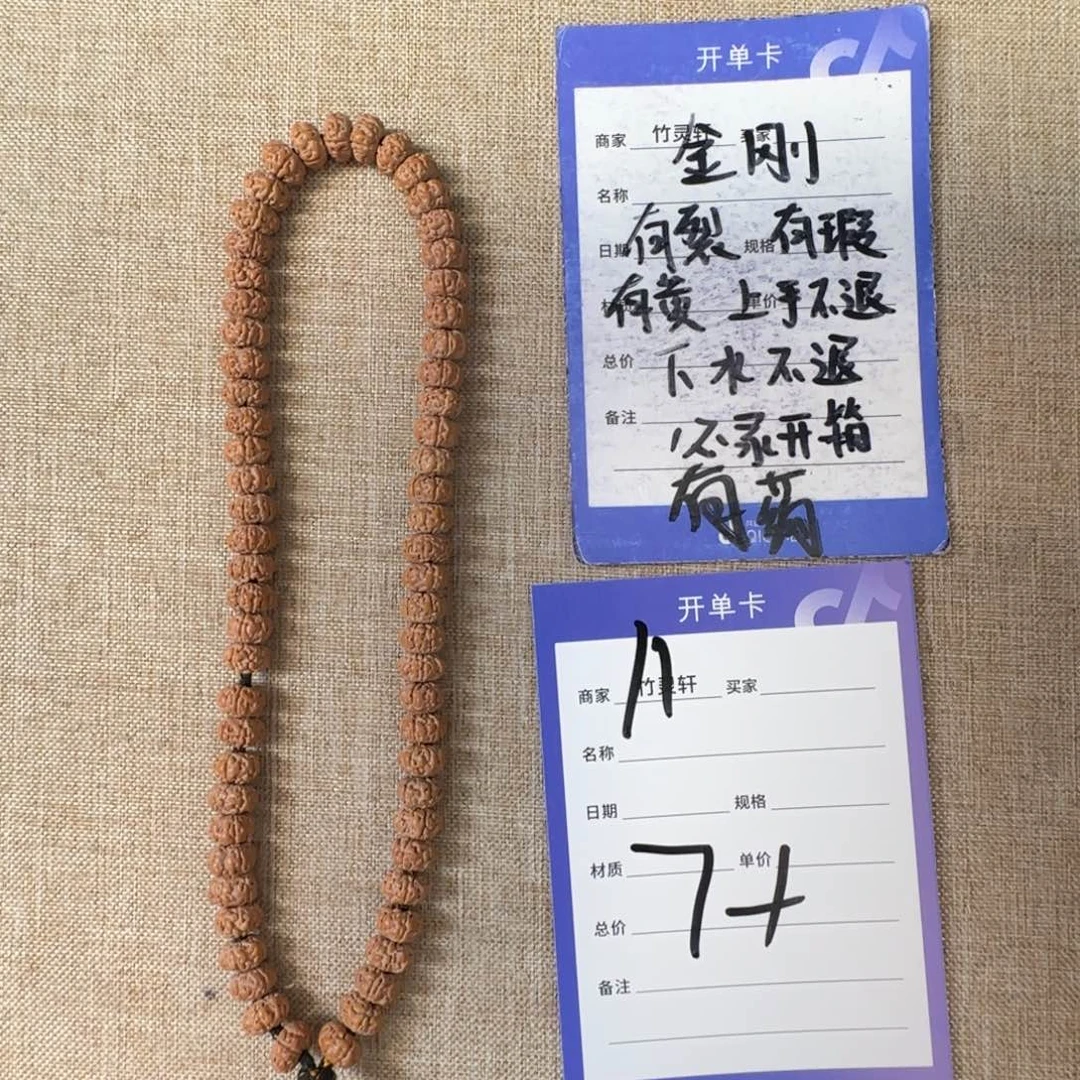 开单卡
商家 竹灵轩 买家
金刚
名称
日期 规格
有裂 有瑕
有黄 上手不退
单价
总价
下水不退
备注
必录开箱
有药
开单卡
商家 竹灵轩 买家
名称
日期 规格
材质 单价
7+
总价
备注